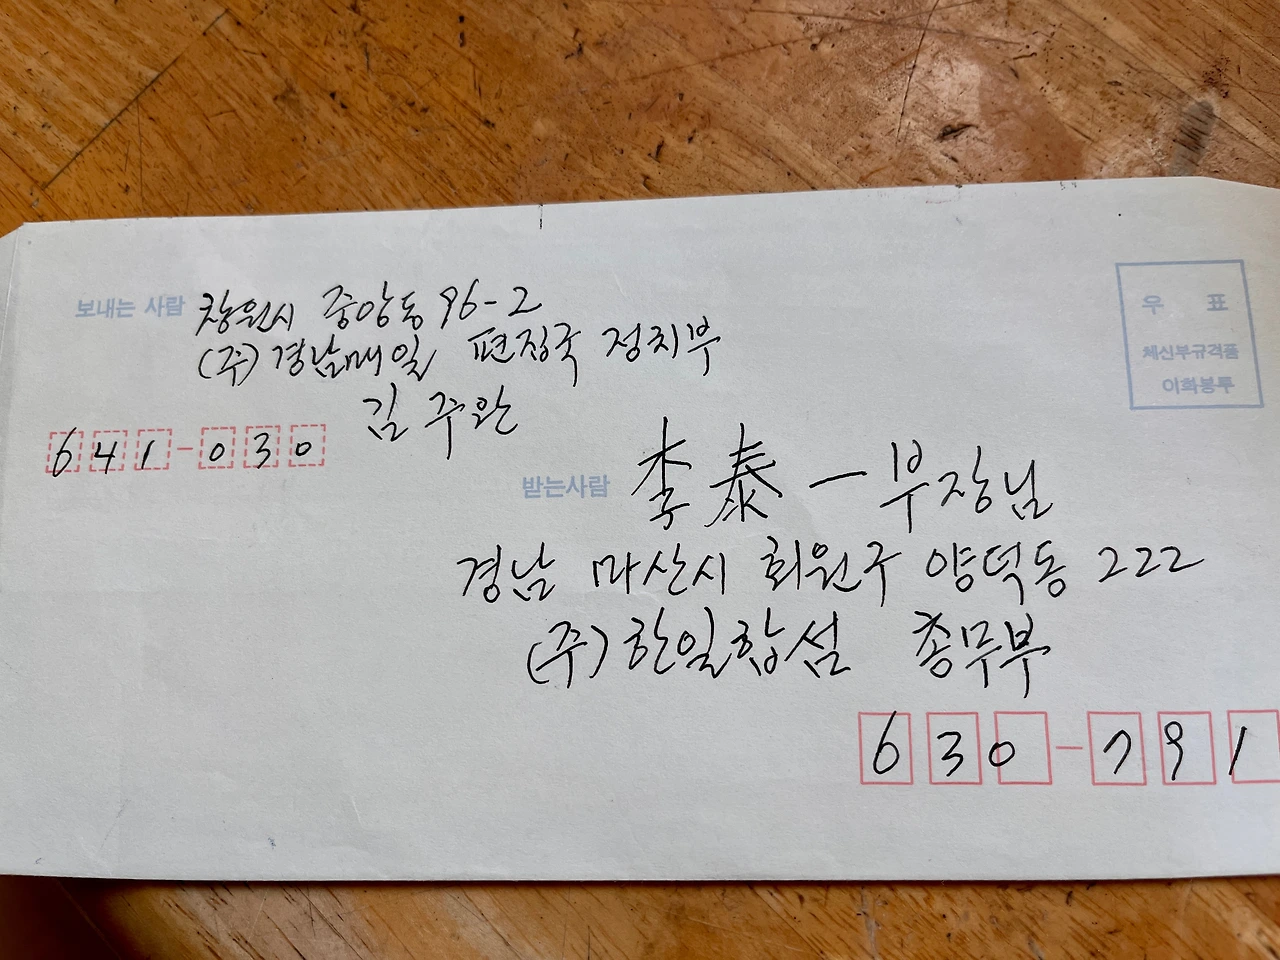 보내는 사람 창원시 중앙동 96-2
(주)경남매일 편집국 정치부
김주완
641-030
우 표
체신부규격품
이화봉투
받는사람 李泰一 부장님
경남 마산시 회원구 양덕동 222
(주)한일합섬 총무부
630-791